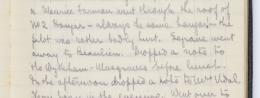 a Maurice Farman went through the roof of
No 2 Hangar - always the same hangar - the
pilot was rather badly hurt. Squaire went
away to Beaulieu. Dropped a note to
the Wykeham-Musgraves before lunch.
In the afternoon dropped a note to Mrs Vidal.
in the evening. Went over to